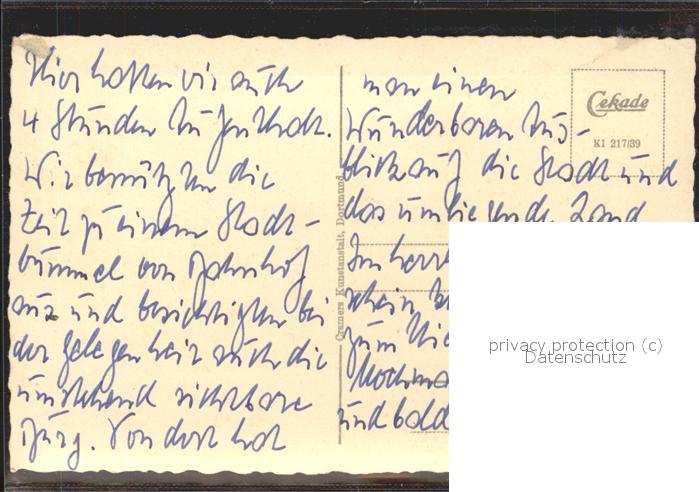 Hier hatten wir auch
4 Stunden Aufenthalt.
Wir benützten die
Zeit zu einem Stadt-
bummel vom Bahnhof
aus und besichtigten bei
der Gelegenheit auch die
umstehend sichtbare
Burg. Von dort hat
man einen
wunderbaren Aus-
blick auf die Stadt und
das umliegende Land
Im herr
schein
zum
Nochma
und bald
Cramers Kunstanstalt, Dortmund
Cekade
KI 217/39
privacy protection (c)
Datenschutz